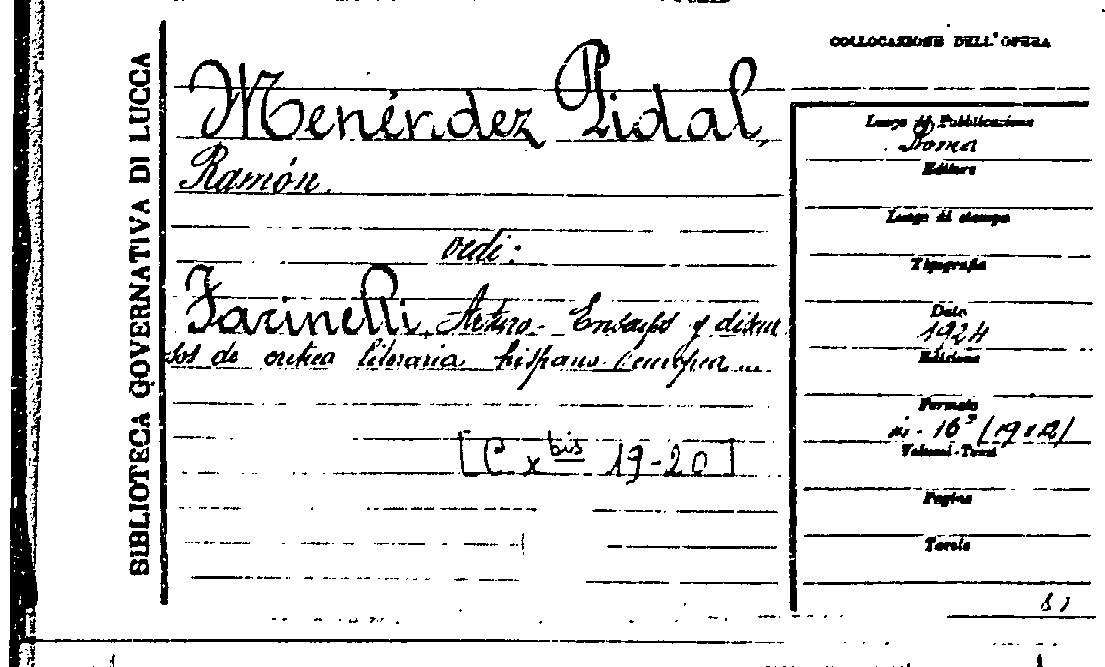 BIBLIOTECA GOVERNATIVA DI LUCCA
COLLOCAZIONE DELL'OPERA
Menéndez Pidal,
Ramón.
vedi:
Farinelli, Arturo - Ensayos y discur
sos de critica literaria hispano-europea ...
[C x bis 19-20]
Luogo di Pubblicazione
Roma
Editore
Luogo di stampa
Tipografia
Data
1924
Edizione
Formato
in-16° (19x12)
Volumi-Tomi
Pagine
Tavole